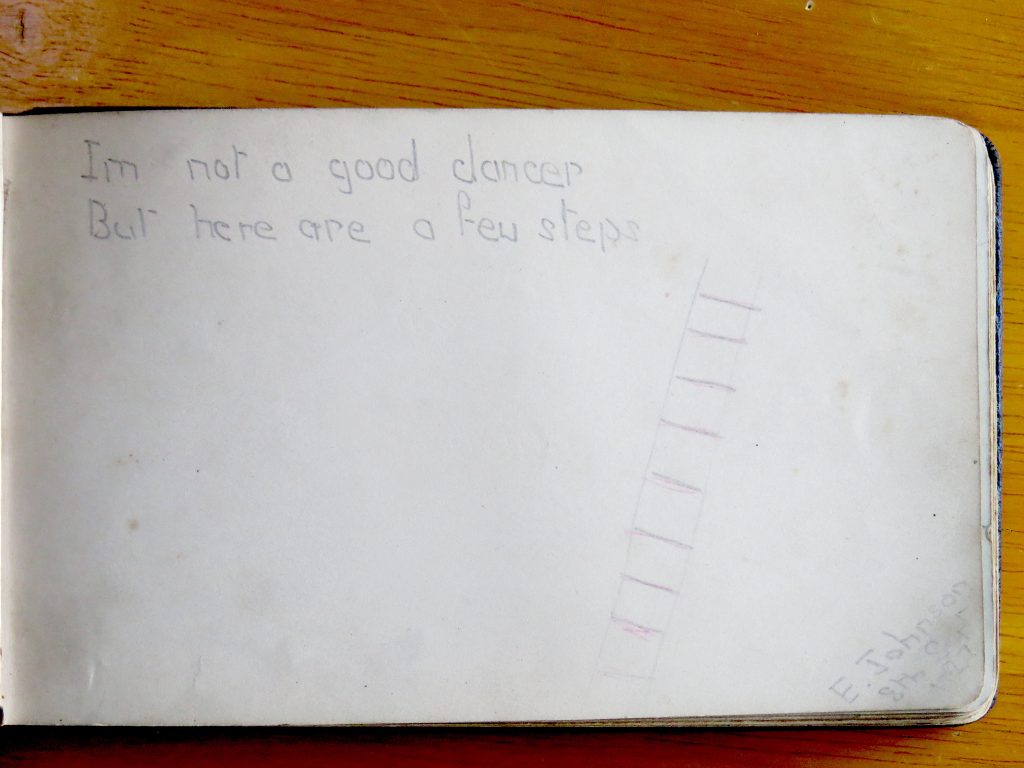 Im not a good dancer
But here are a few steps
E. Johnson